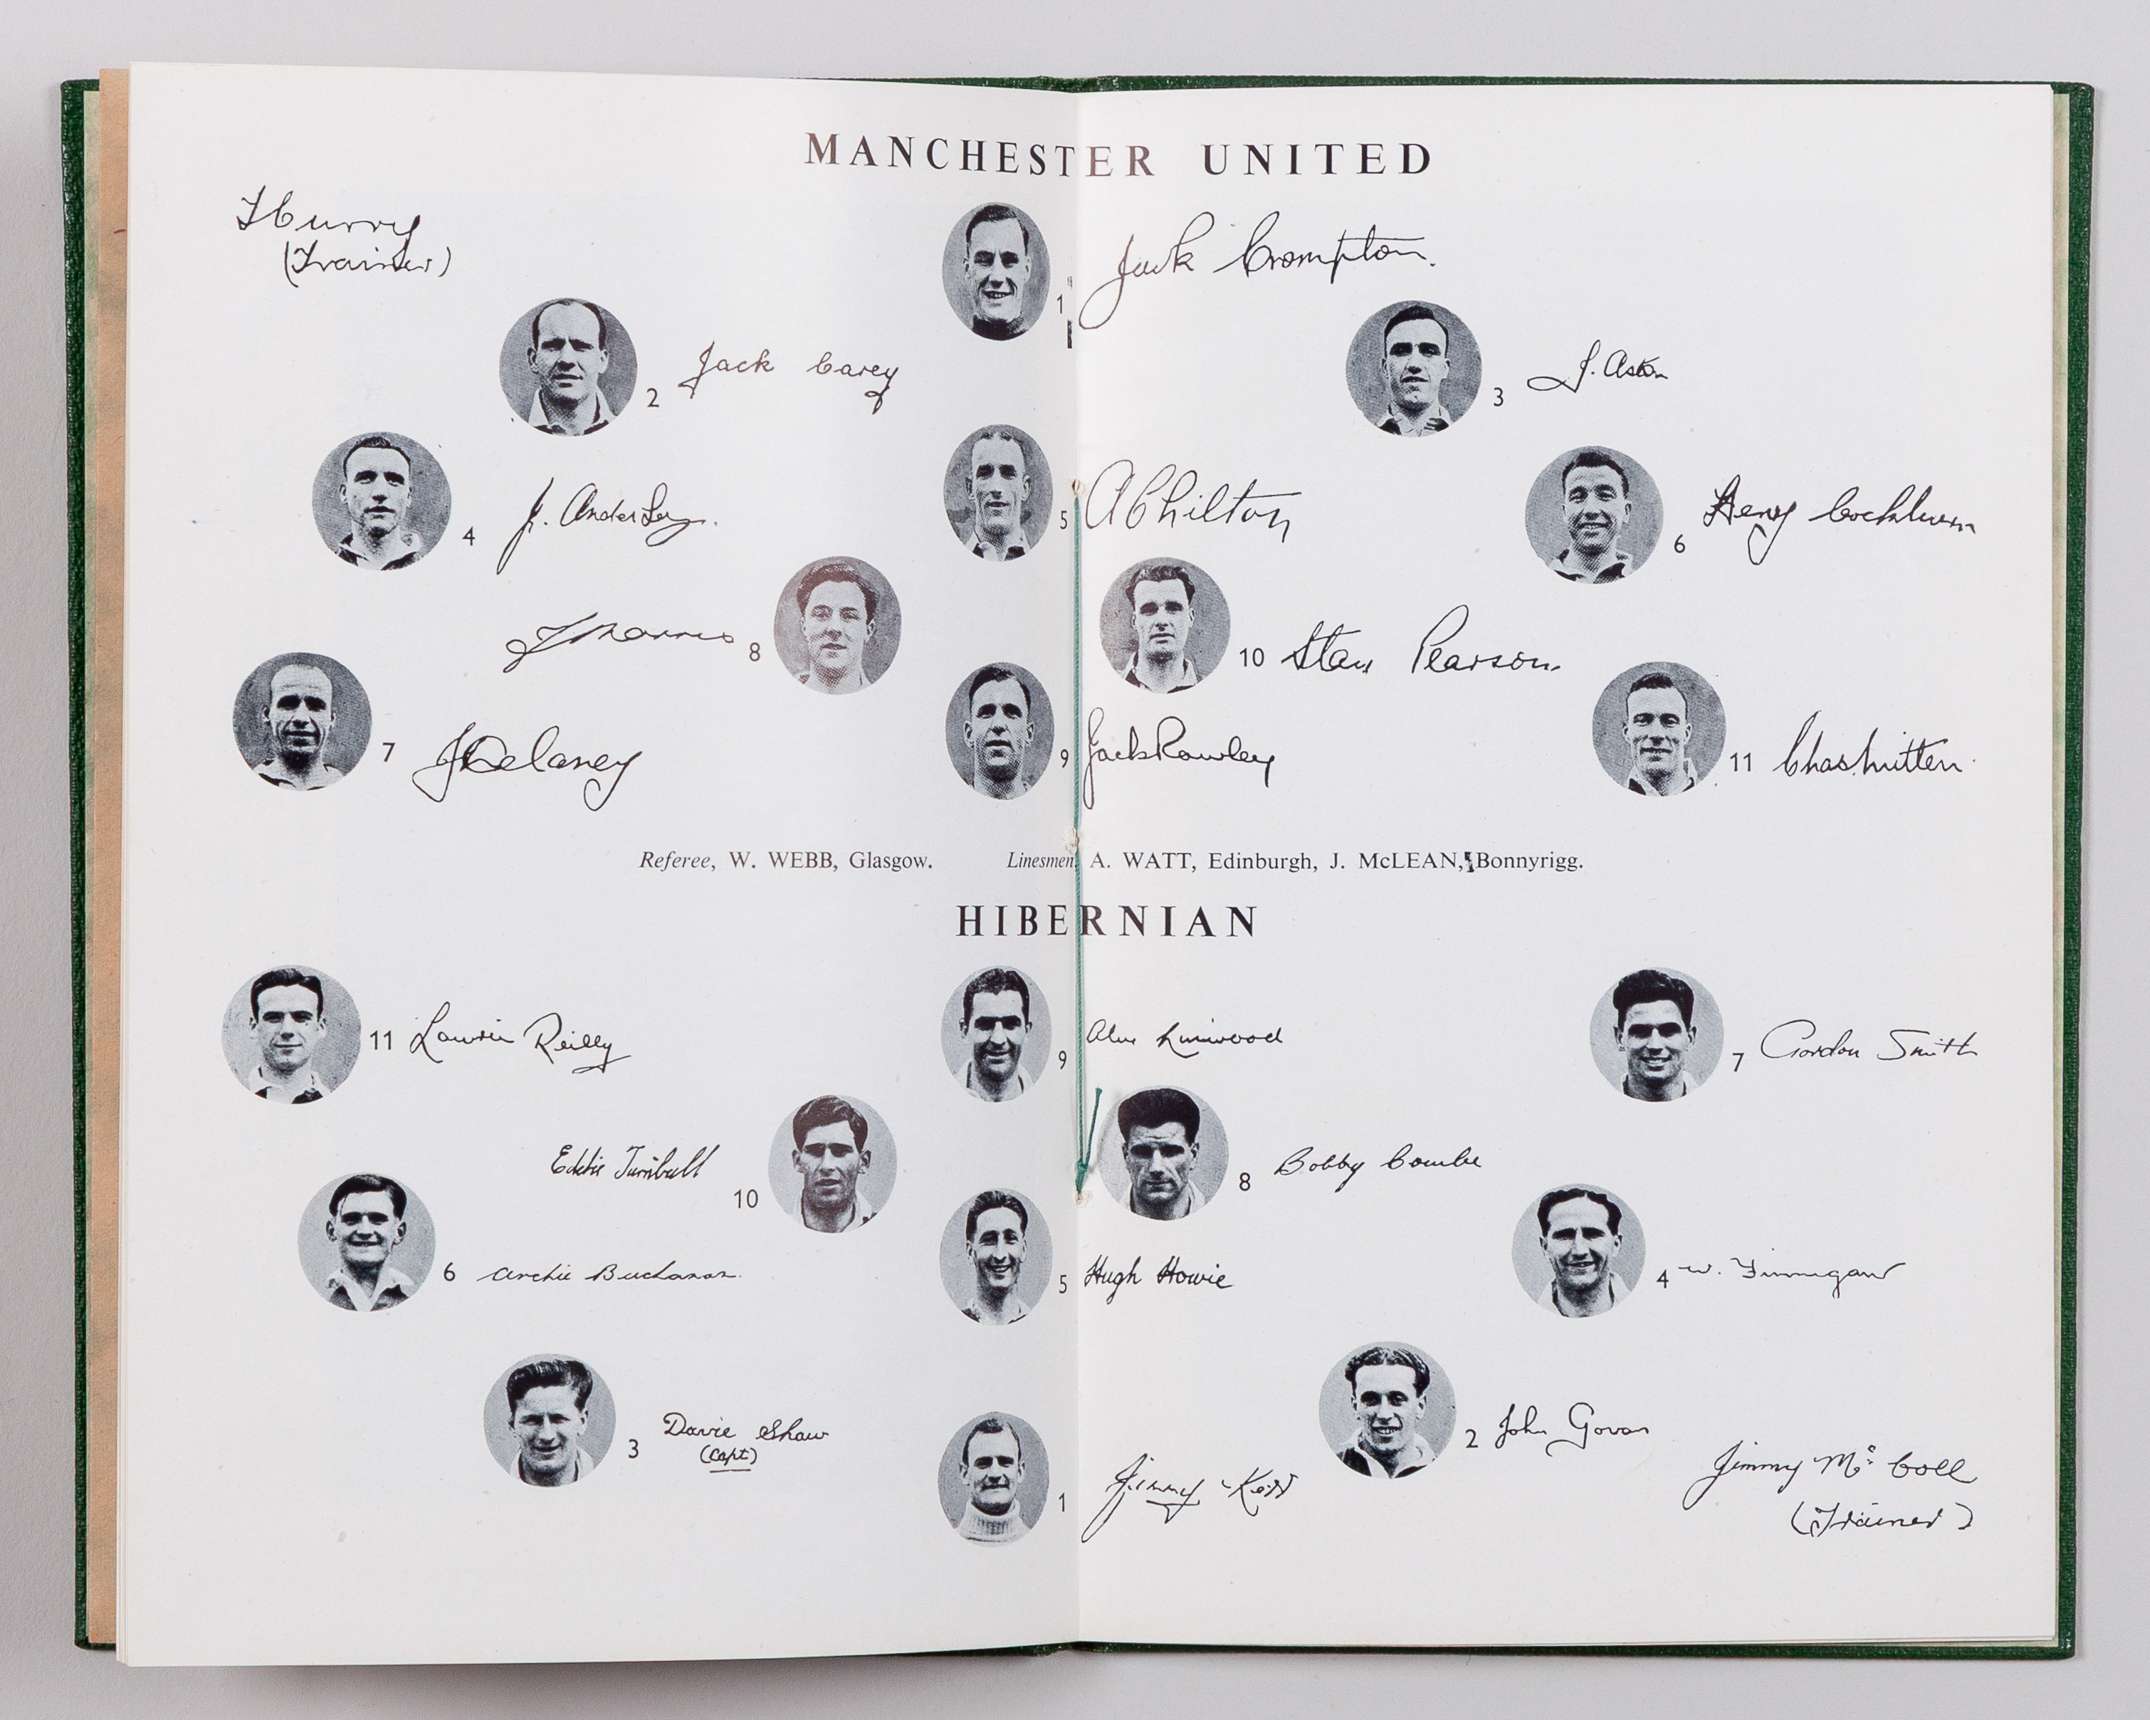 MANCHESTER UNITED
T Curry
(Trainer)
1 Jack Crompton.
2 Jack Carey
3 J. Aston
4 J. Anderson.
5 A Chilton
6 Henry Cockburn
T Morris 8
10 Stan Pearson.
7 J Delaney
9 Jack Rowley
11 Chas. Mitten.
Referee, W. WEBB, Glasgow. Linesmen, A. WATT, Edinburgh, J. McLEAN, Bonnyrigg.
HIBERNIAN
11 Lawrie Reilly
9 Alex Linwood
7 Gordon Smith
Eddie Turnbull
10
8 Bobby Combe
6 Archie Buchanan.
5 Hugh Howie
4 W. Finnigan
3 Davie Shaw
(Capt)
1 Jimmy Kerr
2 John Govan
Jimmy Mc Coll
(Trainer)